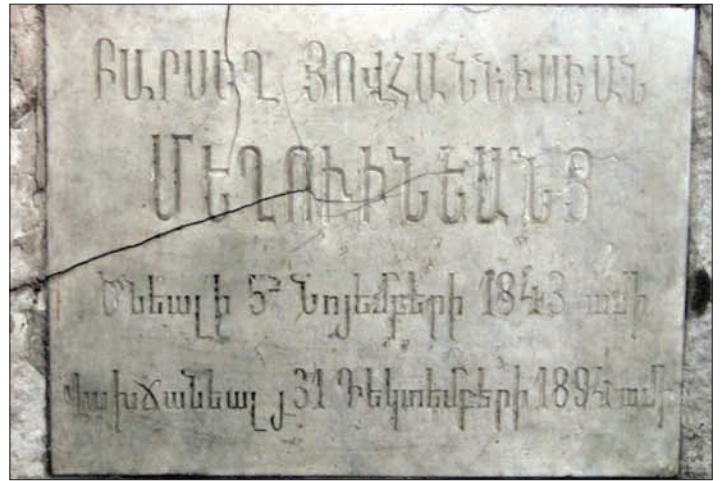 ԲԱՐՍԵՂ ՅՈՎՀԱՆՆԻՍԵԱՆ
ՄԵՂՈՒԻՆԵԱՆՑ
Ծնեալ ի 5 Նոյեմբերի 1843 ամի
Վախճանեալ յ 31 Դեկտեմբերի ամի